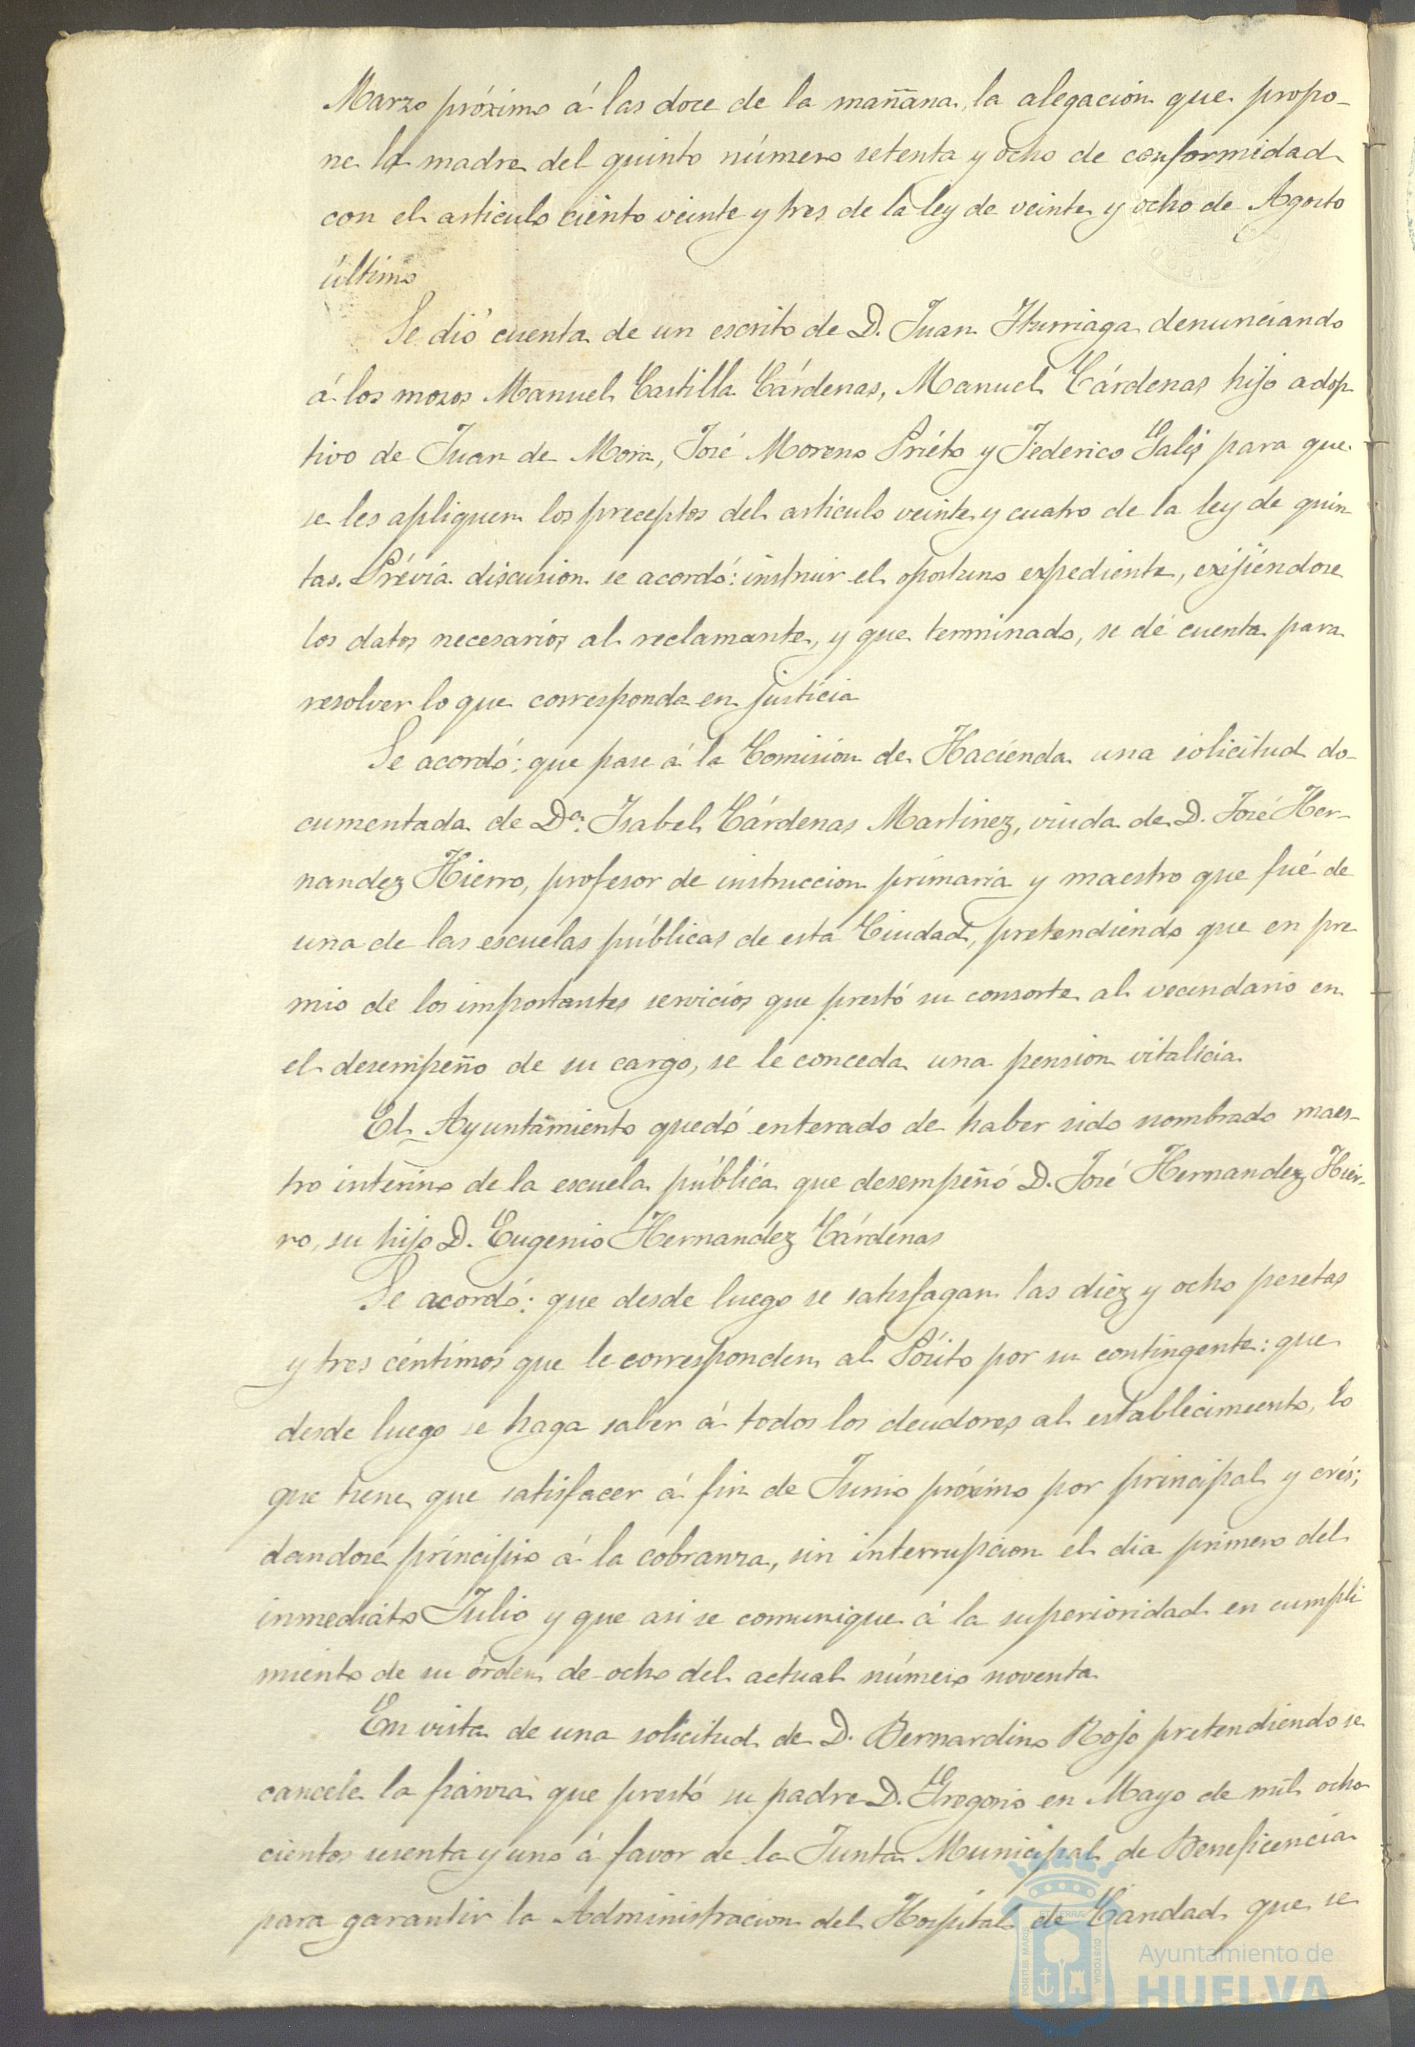 Marzo próximo á las doce de la mañana, la alegacion que propo-
ne la madre del quinto número setenta y ocho de conformidad
con el articulo ciento veinte y tres de la ley de veinte y ocho de Agosto
último
Se dió cuenta de un escrito de D. Juan Iturriaga denunciando
á los mozos Manuel Castilla Cárdenas, Manuel Cárdenas hijo adop
tivo de Juan de Mora, José Moreno Prieto y Federico Galis para que
se les apliquen los preceptos del articulo veinte y cuatro de la ley de quin-
tas. Prévia discusion se acordó: instruir el oportuno expediente, exijiéndose
los datos necesarios al reclamante, y que terminado, se dé cuenta para
resolver lo que corresponda en justicia
Se acordó: que pase á la Comision de Hacienda una solicitud do-
cumentada de Dª. Isabel Cárdenas Martinez, viuda de D. José Her-
nandez Hierro, profesor de instruccion primaria y maestro que fué de
una de las escuelas públicas de esta Ciudad, pretendiendo que en pre
mio de los importantes servicios que prestó su consorte al vecindario en
el desempeño de su cargo, se le conceda una pension vitalicia
El Ayuntamiento quedó enterado de haber sido nombrado maes-
tro interino de la escuela pública que desempeñó D. José Hernandez Hier-
ro, su hijo D. Eugenio Hernandez Cárdenas
Se acordó: que desde luego se satisfagan las diez y ocho pesetas
y tres céntimos que le corresponden al Pósito por su contingente: que
desde luego se haga saber á todos los deudores al establecimiento, lo
que tiene que satisfacer á fin de Junio próximo por principal y crés;
dandose principio á la cobranza, sin interrupcion el dia primero del
inmediato Julio y que asi se comunique á la superioridad en cumpli
miento de su órden de ocho del actual número noventa
En vista de una solicitud de D. Bernardino Rojo pretendiendo se
cancele la fianza que prestó su padre D. Gregorio en Mayo de mil ocho
cientos sesenta y uno á favor de la Junta Municipal de Beneficencia
para garantir la Administracion del Hospital de Caridad que se
Ayuntamiento de
HUELVA